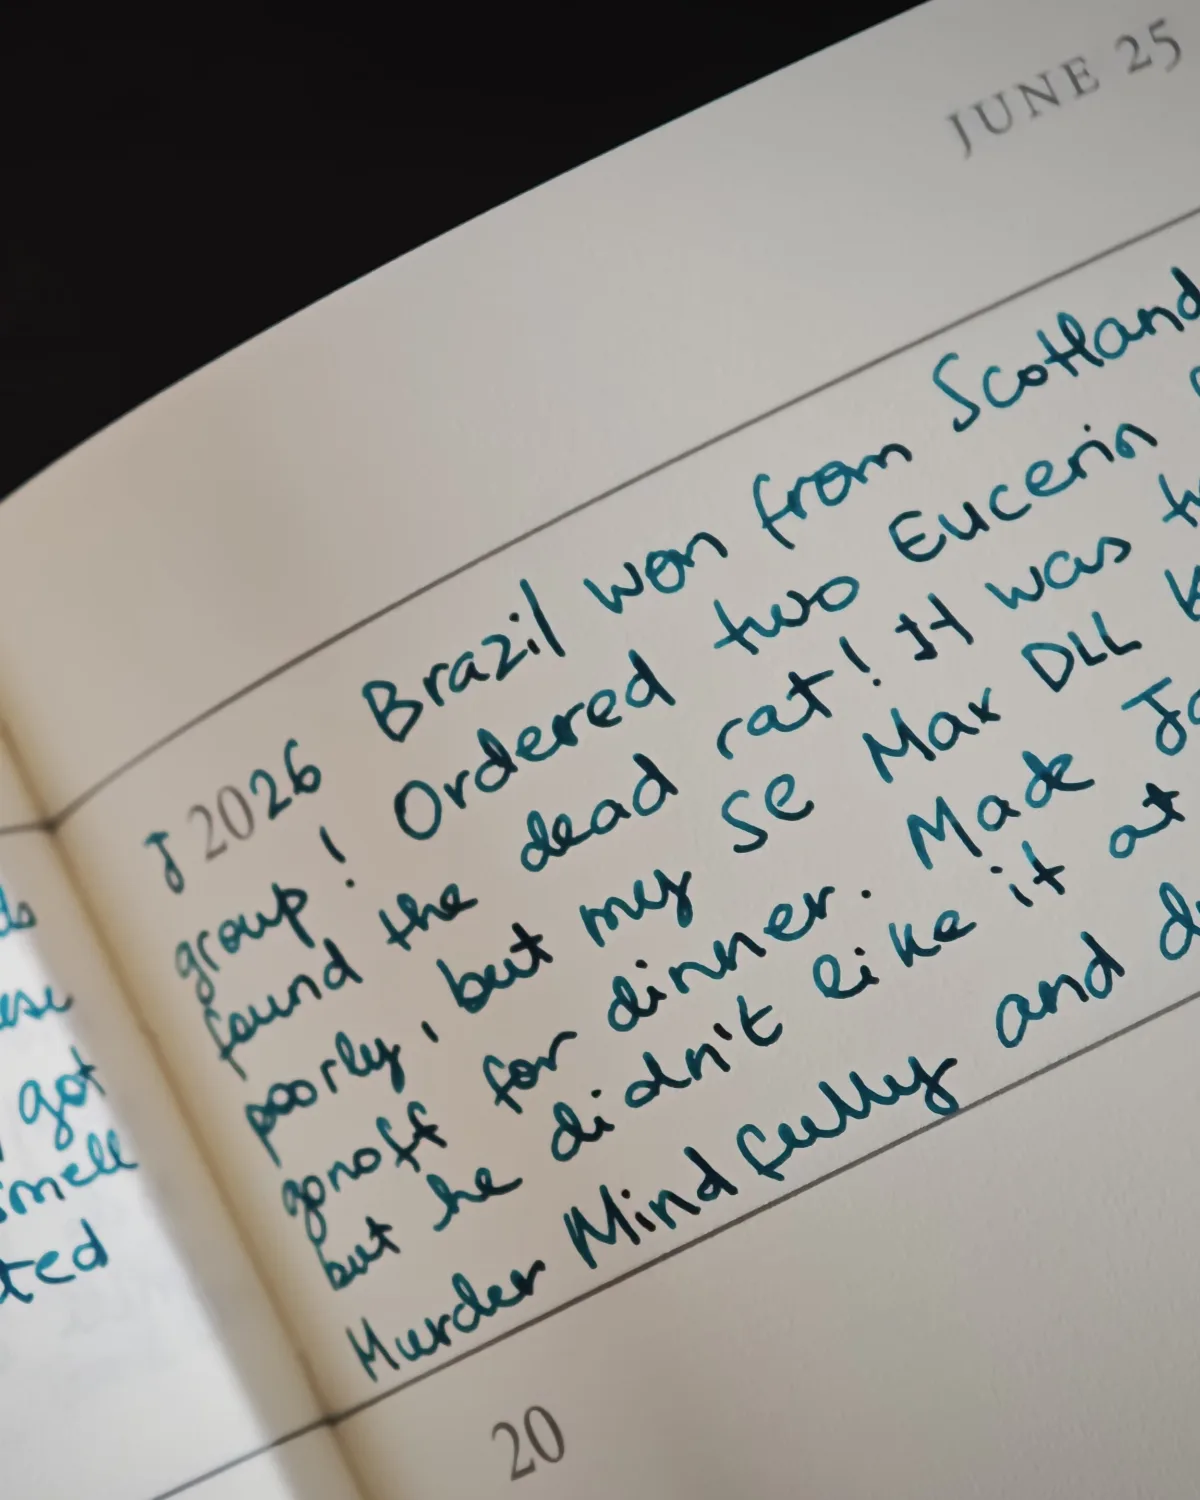 JUNE 25
J 2026 Brazil won from Scotland
group! Ordered two Eucerin
found the dead rat! It was
poorly, but my SE Max DLL
gonoff for dinner. Made
but he didn't like it at
Murder Mindfully and
20
got
smell
ted